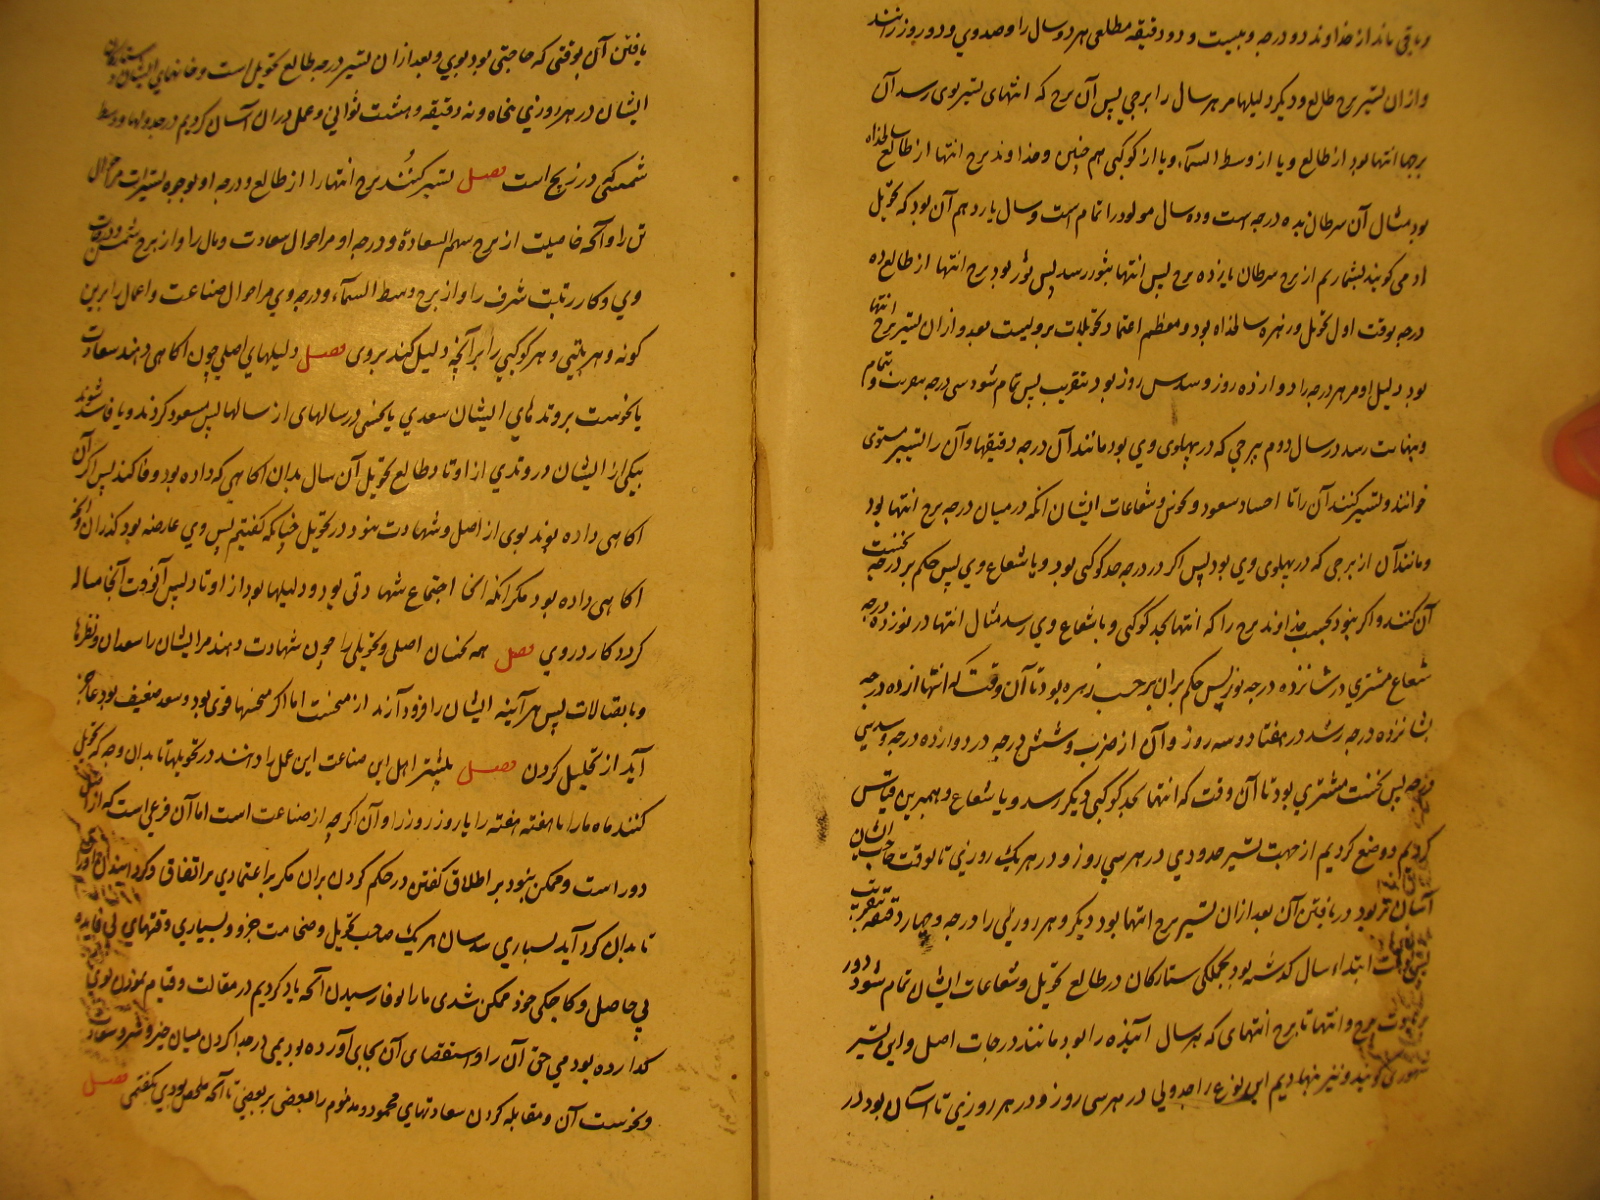 و باقی ماند از خداوند دو درجه و بیست و دو دقیقه مطلعی هر دو سال را و صد وي و دو روز رانند
و ازان تسییر برج طالع و دیگر دلیلها مر هر سال را برجی پس آن برج که انتهای تسییر بوی رسد آن
برجها انتها بود از طالع و یا از وسط السمآء و یا از کوکبی هم چنین و خداوند برج انتها از طالع سالخذاه
بود مثال آن سرطان بده درجه است و ده سال مولود را تمام است و سال یازدهم آن بود که تحویل
او می کویند بشماریم از برج سرطان یازده برج پس انتها بثور رسد پس ثور بود برج انتها از طالع ده
درجه بوقت اول تحویل و زهره سالخذاه بود و معظم اعتماد تحویلات برویست بعد و ازان تسییر برج انتها
بود دلیل او مر هر درجه را دوازده روز و سدس روز بود بتقریب پس تمام شود سی درجه بتمام
و بنهایت رسد در سال دوم ببرجی که در پهلوی وی بود مانند آن درجه دقیقها و آن را تسییر مستوی
خوانند و تسییر کنند آن را تا اجساد سعود و نحوس و شعاعات ایشان انکه در میان درجه برج انتها بود
و مانند آن از برجی که در پهلوی وی بود پس اکر در درجه حد کوکبی بود و یا شعاع وی پس حکم بر درجه نخست
آن کنند و اکر نبود بحسب خداوند برج را که انتها بحد کوکبی و یا شعاع وي رسد مثال انتها در ثور ده درجه
شعاع مشتري در شانزده درجه ثور پس حکم بران برحسب زهره بود تا آن وقت که انتها از ده درجه
بشانزده درجه رسد در هفتاد و سه روز و آن از ضرب شش درجه در دوازده درجه و سدسی
درجه پس نخست مشتري بود تا آن وقت که انتها بحد کوکبی دیگر رسد و یا شعاع و همبرین قیاس
کردیم و وضع کردیم از جهت تسییر جدولي در هر سي روز و در هر یک روزي تا بوقت حاجت ایشان
آسان تر بود دریافتن آن بعد ازان تسییر برج انتها بود دیگر و هر روزی را درجه و چهار دقیقه بتقریب
ابتداء سال کذشته بود بجملکی ستارکان در طالع تحویل و شعاعات ایشان تمام شود دور
برج و انتها تا برج انتهای که هر سال آینده را بود مانند درجات اصل و این تسییر
شهوری کویند و نیز نهادیم این نوع را جدولي در هر سی روز و در هر روزي تا آسان بود در
یافتن آن بوقتی که حاجتی بود بوي و بعد ازان تسییر درجه طالع تحویل است و خانهای ایشان و ستارکان
ایشان در هر روزي پنجاه و نه دقیقه و هشت ثوانی و عمل دران آسان کردیم در جدولها وسط
شمسی که در زیج است فصل تسییر کُنند برج انتها را از طالع و درجه او بوجوه تسییرات مر احوال
تن را و آنچه خاصیت از برج سهم السعادة و درجه او مر احوال سعادت و مال را و از برج شمس و درجات
وي و کار رتبت شرف را و از برج وسط السمآء و درجه وي مر احوال صناعت و اعمال را برین
کونه و هر بیتی و هر کوکبي را بر آنچه دلیل کند بروی فصل دلیلهاي اصلي چون اکاهی دهند سعادت
یا نحوست بر وتدهاي ایشان سعدي یا نحسی در سالهای از سالها پس مسعود کردند و یا فاسد شوند
بیکی از ایشان در وتدي از اوتاد طالع تحویل آن سال بدان اکاهي که داده بود وفا کند پس اکر آن
اکاهی داده بوند بوی از اصل و شهادت نبود در تحویل چنانکه کفتیم پس وي عارضه بود کذران و آنچه
اکاهی داده بود مکر انکه انجا اجتماع شهادتی بود و دلیلها بود از اوتاد پس آنوقت آنجا مساله
کردد کار در وي فصل همکنان اصلی و تحویلی را چون شهادت دهند مر ایشان را سعدان و نظرها
و یا بقبالات پس هر آینه ایشان را فرود آرند از منحست اما اکر منحسها قوی بود و سعد ضعیف بود عاجز
آید از تحلیل کردن فصل بیشتر اهل این صناعت این عمل را دهند در تحویلها تا بدان وجه که تحویل
کنند ماه ماه را یا هفته هفته را یا روز روز را و آن اکر چه از صناعت است اما آن فرعی است که از اصل
دور است و ممکن نبود بر اطلاق کفتن در حکم کردن بران مکر بر اعتمادي بر اتفاق
تا بدان کرد آید بسیاري سدسان هر یک صاحب تحویل و ضخامت جزو و بسیاري وقتهاي بی فایده
بي حاصل و کاجکی خود ممکن شدی مارا بوفا رسیدن آنچه یاد کردیم در مقالت و قیام نمودن بوي
کذارده بودمي حق آن را و استقصای آن بجای آورده بودیمی در جدا کردن میان خیر و شر و سعادت
و نحوست آن و مقابله کردن سعادتهاي محمود و مذموم را بعضی بر بعضي تا آنچه ملخص بودي بکفتمی فصل